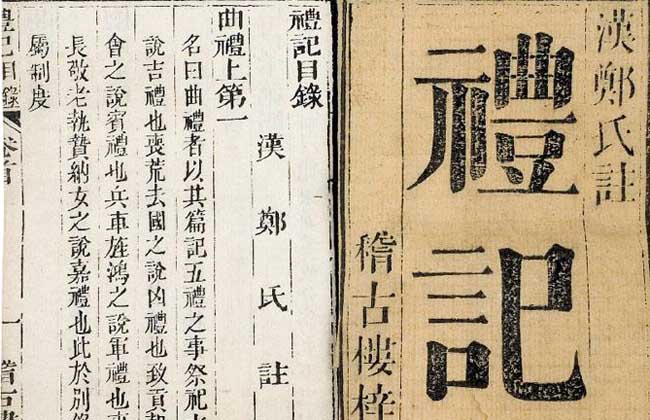 漢鄭氏註
禮記
稽古樓梓
禮記目錄
漢鄭氏註
曲禮上第一
名曰曲禮者以其篇記五禮之事祭祀
說吉禮也喪荒去國之說凶禮也致貢朝
會之說賓禮也兵車旌鴻之說軍禮也事
長敬老執贄納女之說嘉禮也此於別錄
屬制度
禮記目錄
卷首
一